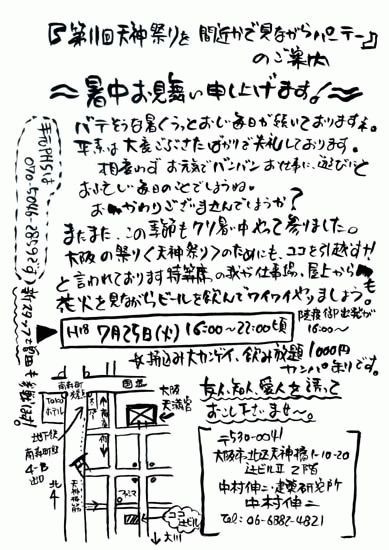 『第11回天神祭りを間近かで見ながらパーティー』
のご案内
〜暑中お見舞い申し上げます!〜
バテそうな暑くうっとおしい毎日が続いておりますネ。
平素は大変ごぶさたばかりで失礼しております。
相変わらず お元気でバンバンお仕事に、遊びにと
お忙しい毎日のことでしょうね。
おかわりございませんでしょうか?
またまた、この季節もクソ暑い中やって参りました。
大阪の祭り〈天神祭り〉のためにも、ココを引越すナ!
と言われております特等席の我が仕事場、屋上から
花火を見ながらビールを飲んでワイワイやりましょう。
H18 7月25日(火) 16:00〜22:00頃
陸渡御出発が
16:00〜
女持込み大カンゲイ、飲み放題 1000円
カンパ有りです。
友人、知人、愛人を誘って
おこし下さいませ〜。
〒530-0041
大阪市北区天神橋1-10-20
辻ビルII 2階
中村伸二・建築研究所
中村伸二
TEL: 06-6882-4821
手元PHSは
070-5046-2859です
南森町
Toko
ホテル
大阪
天満宮
地下鉄
南森町
4-B
出口
北
天神橋筋
ココ
辻ビル
大川